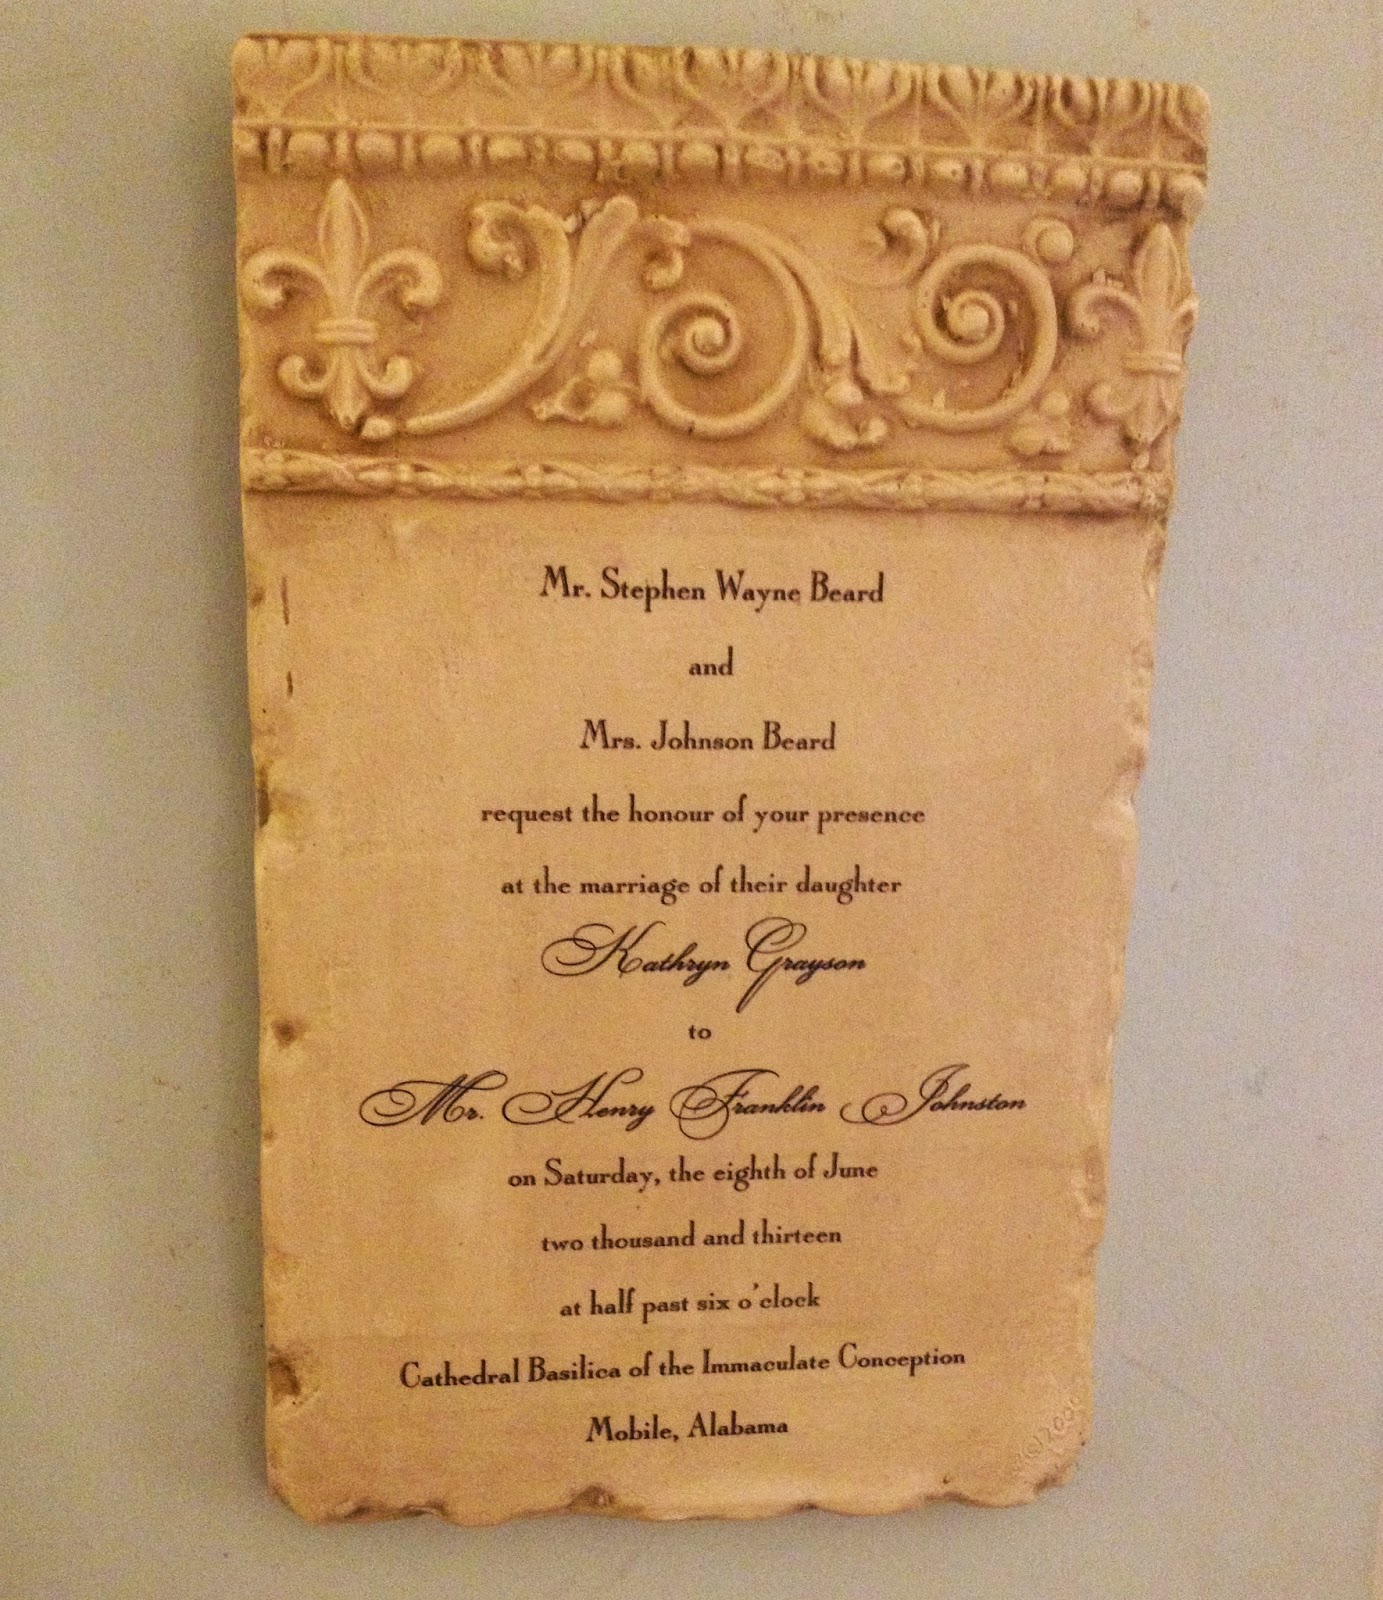 Mr. Stephen Wayne Beard
and
Mrs. Johnson Beard
request the honour of your presence
at the marriage of their daughter
Kathryn Grayson
to
Mr. Henry Franklin Johnston
on Saturday, the eighth of June
two thousand and thirteen
at half past six o'clock
Cathedral Basilica of the Immaculate Conception
Mobile, Alabama